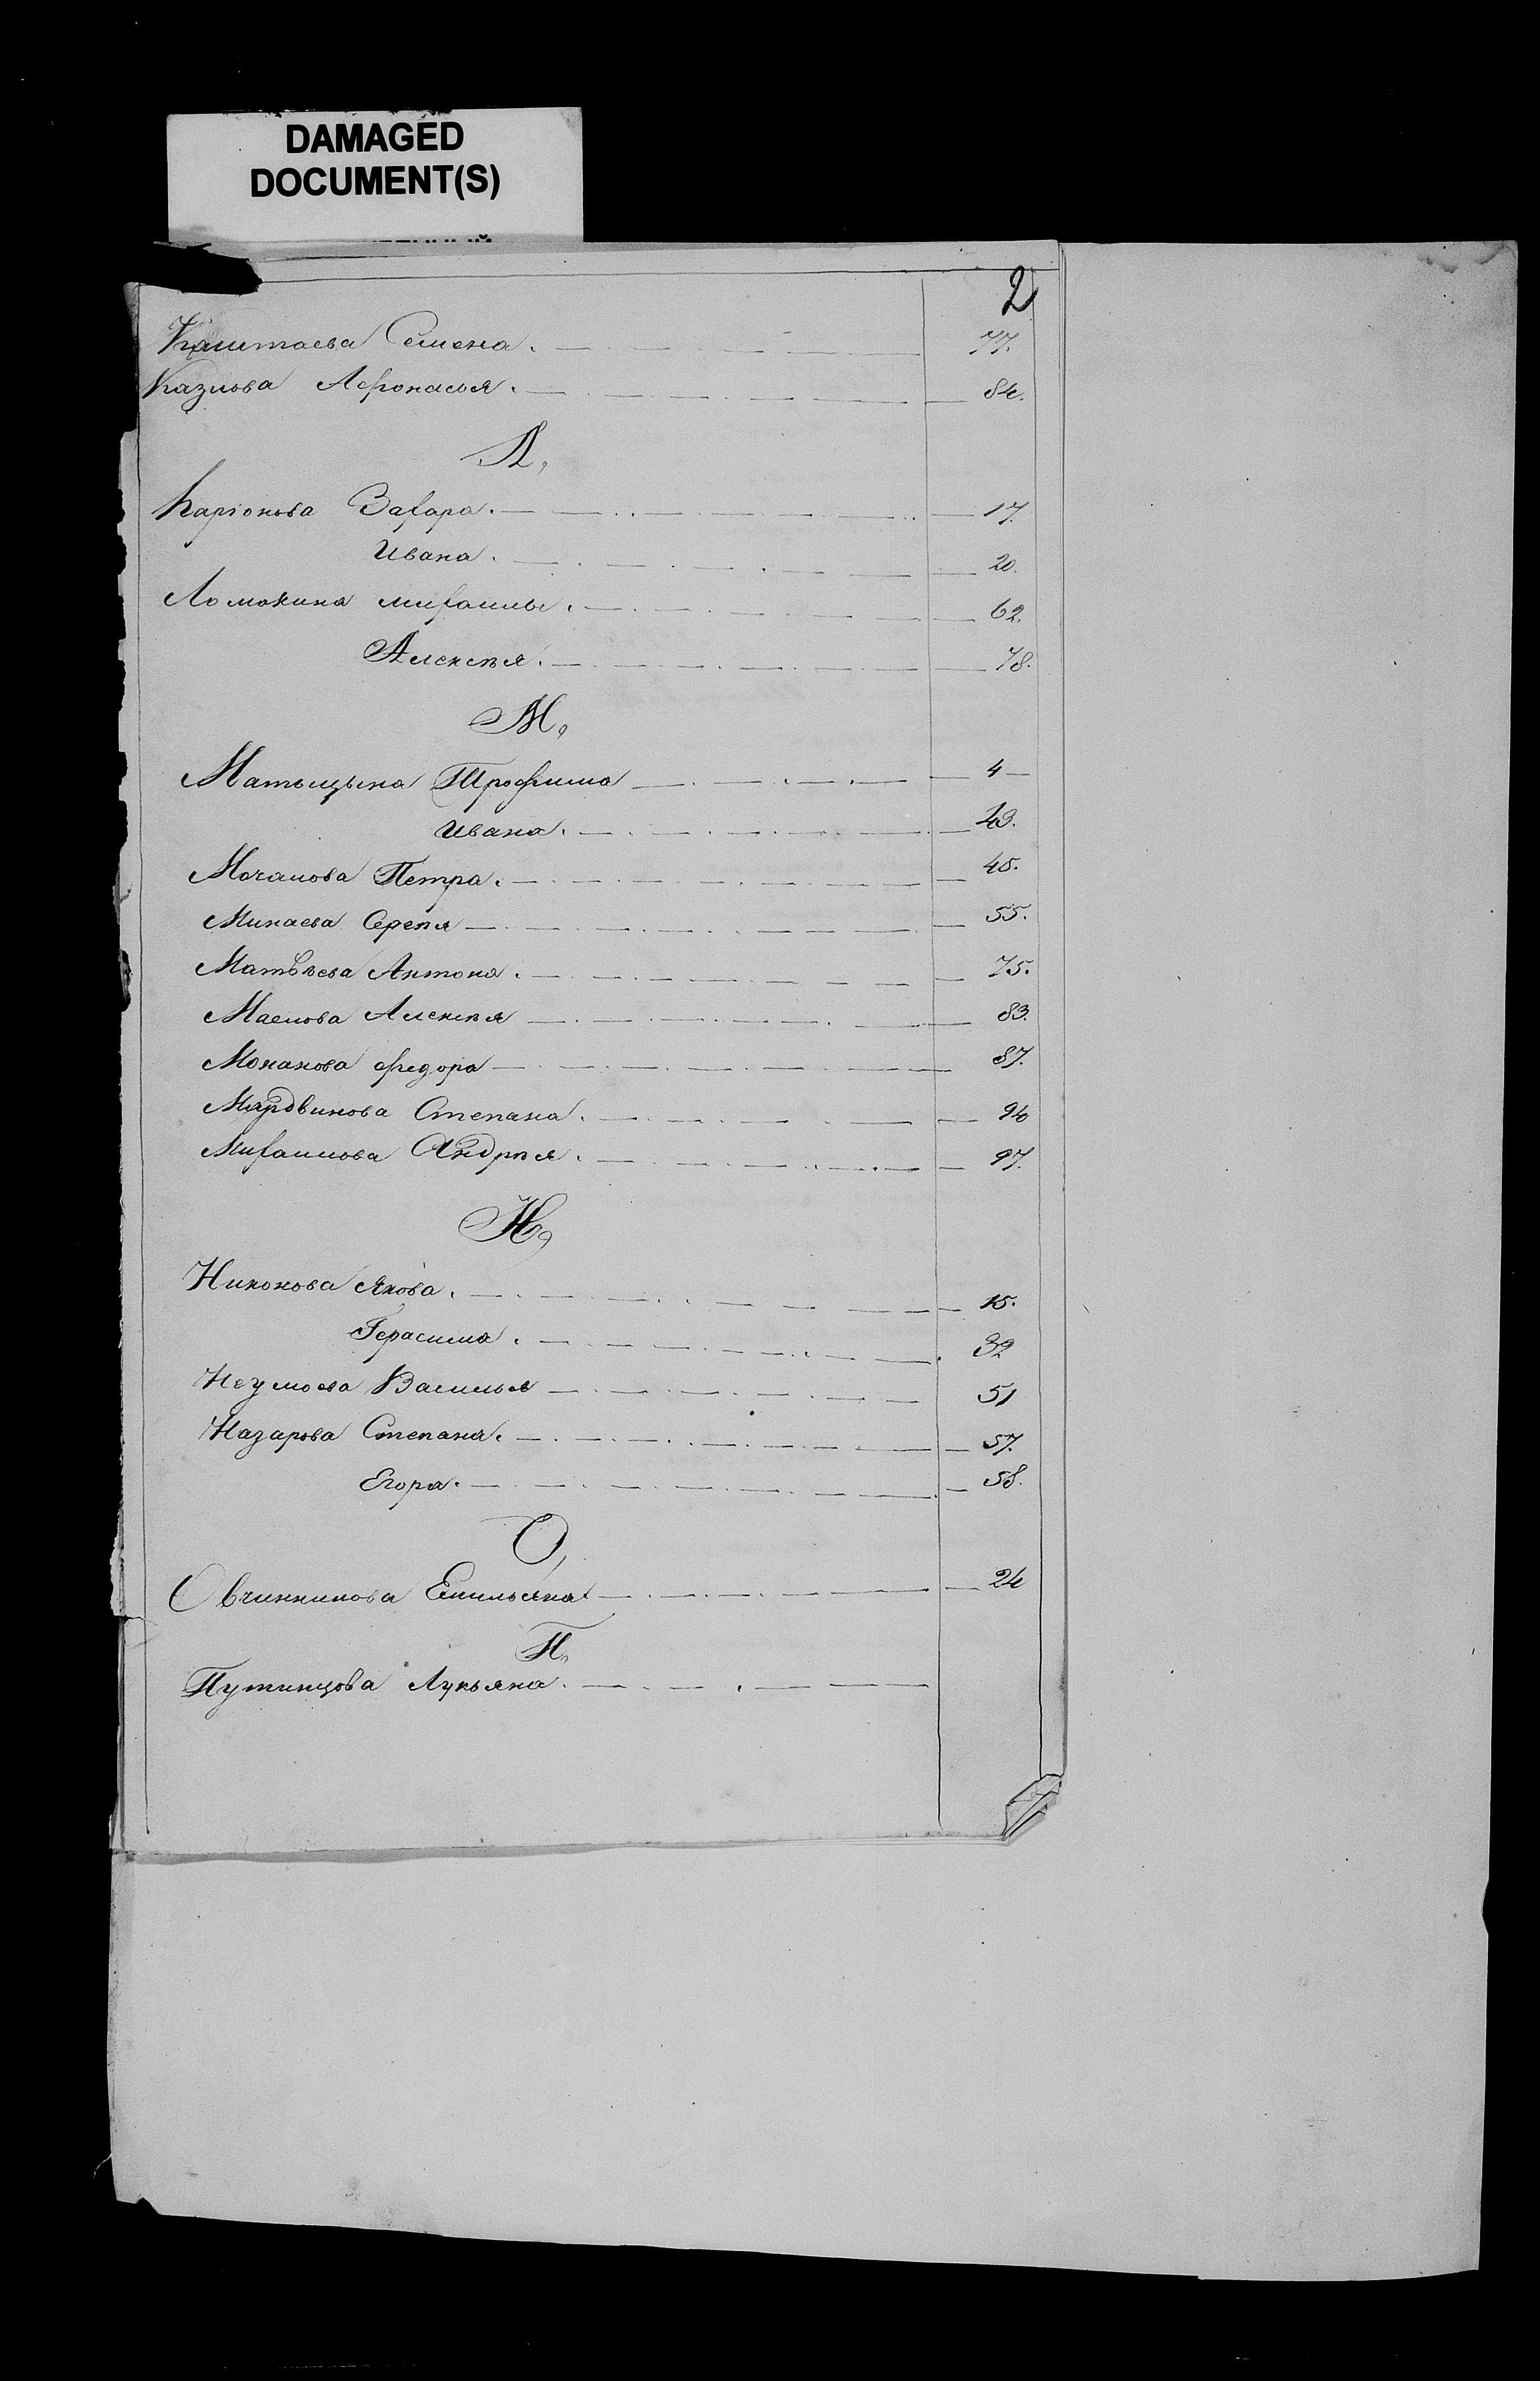 DAMAGED
DOCUMENT(S)
2
Каштаева Семена. 77.
Казлова Афонасья. 84.
Л,
Ларіонова Захара. 17.
Ивана. 20.
Ломакина михаилы. 62.
Алексѣя. 78.
М,
Матыцына Трофима 4
Ивана. 43.
Мочалова Петра. 45.
Минаева Сергѣя 55.
Матвѣева Антона. 75.
Маслова Алексѣя 83.
Моканова Федора 87.
Мардвинова Степана. 94
Михаилова Андрѣя. 97.
Н,
Никонова Якова. 15.
Герасима. 32
Неумоева Василья 51
Назарова Степана. 57.
Егора. 58.
О,
Овчинникова Емильяна 24
П,
Путинцова Лукьяна.